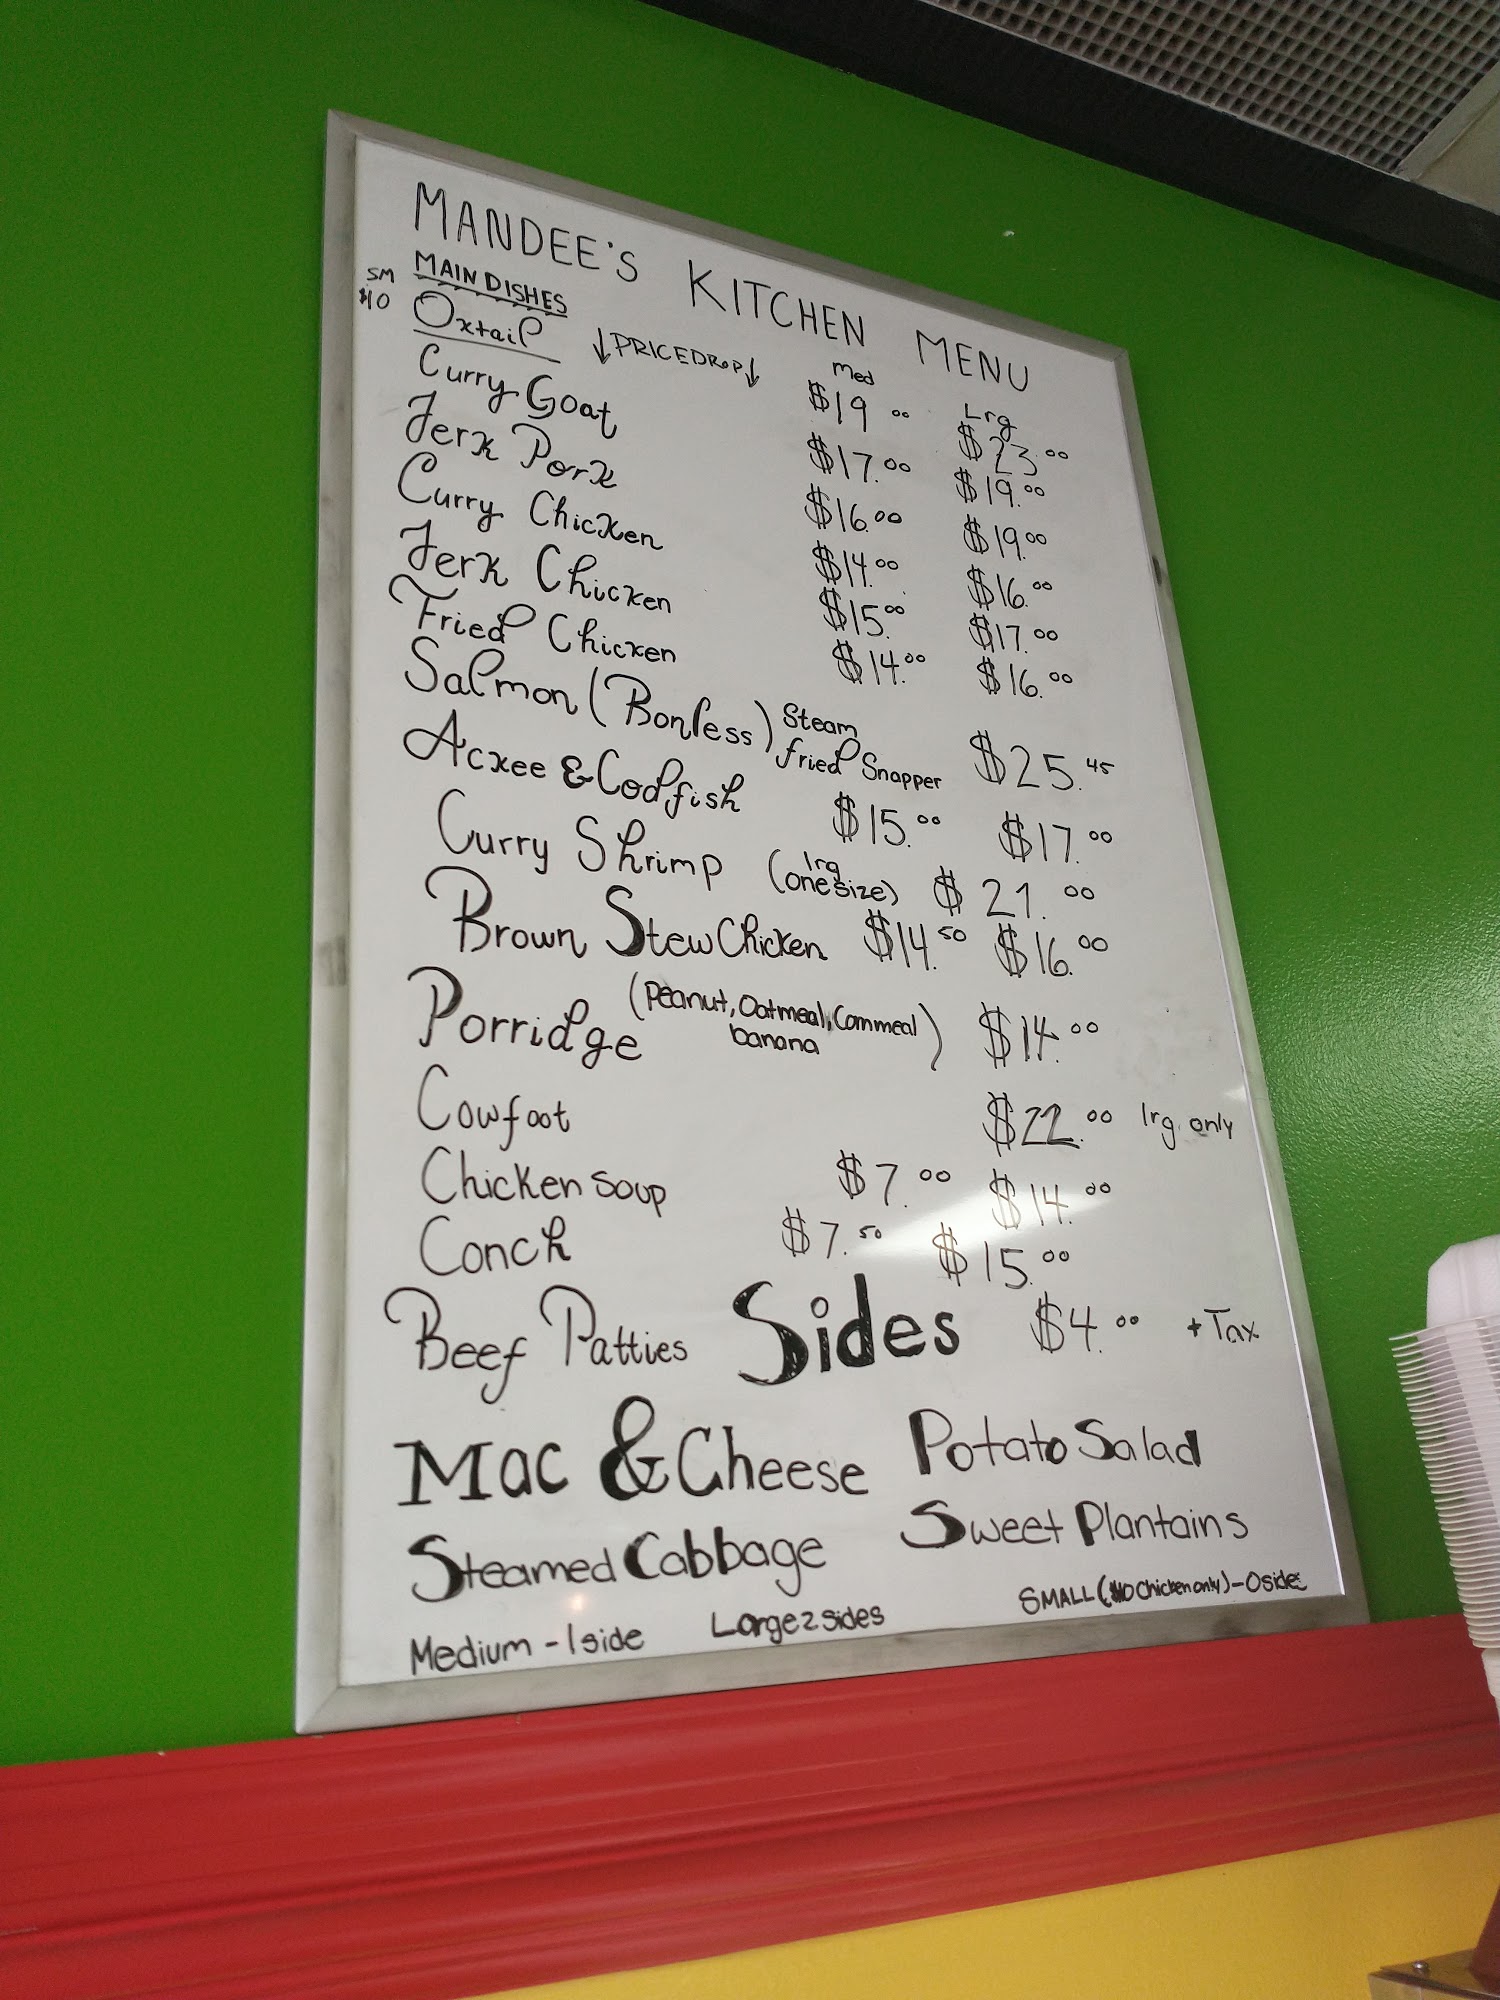 MANDEE'S KITCHEN MENU
SM MAIN DISHES Med Lrg
$10 Oxtail ↓PRICE DROP↓ $19.00 $23.00
Curry Goat $17.00 $19.00
Jerk Pork $16.00 $19.00
Curry Chicken $14.00 $16.00
Jerk Chicken $15.00 $17.00
Fried Chicken $14.00 $16.00
Salmon (Bonless) Steam
fried Snapper $25.45
Ackee & Codfish $15.00 $17.00
Curry Shrimp (lrg
one size) $21.00
Brown Stew Chicken $14.50 $16.00
Porridge (Peanut, Oatmeal, Cornmeal
banana) $14.00
Cowfoot $22.00 lrg only
Chicken Soup $7.00 $14.00
Conch $7.50 $15.00
Beef Patties $4.00 + Tax
Sides
Mac & Cheese Potato Salad
Steamed Cabbage Sweet Plantains
Medium - 1 side Large 2 sides SMALL (Chicken only) - 0 sides